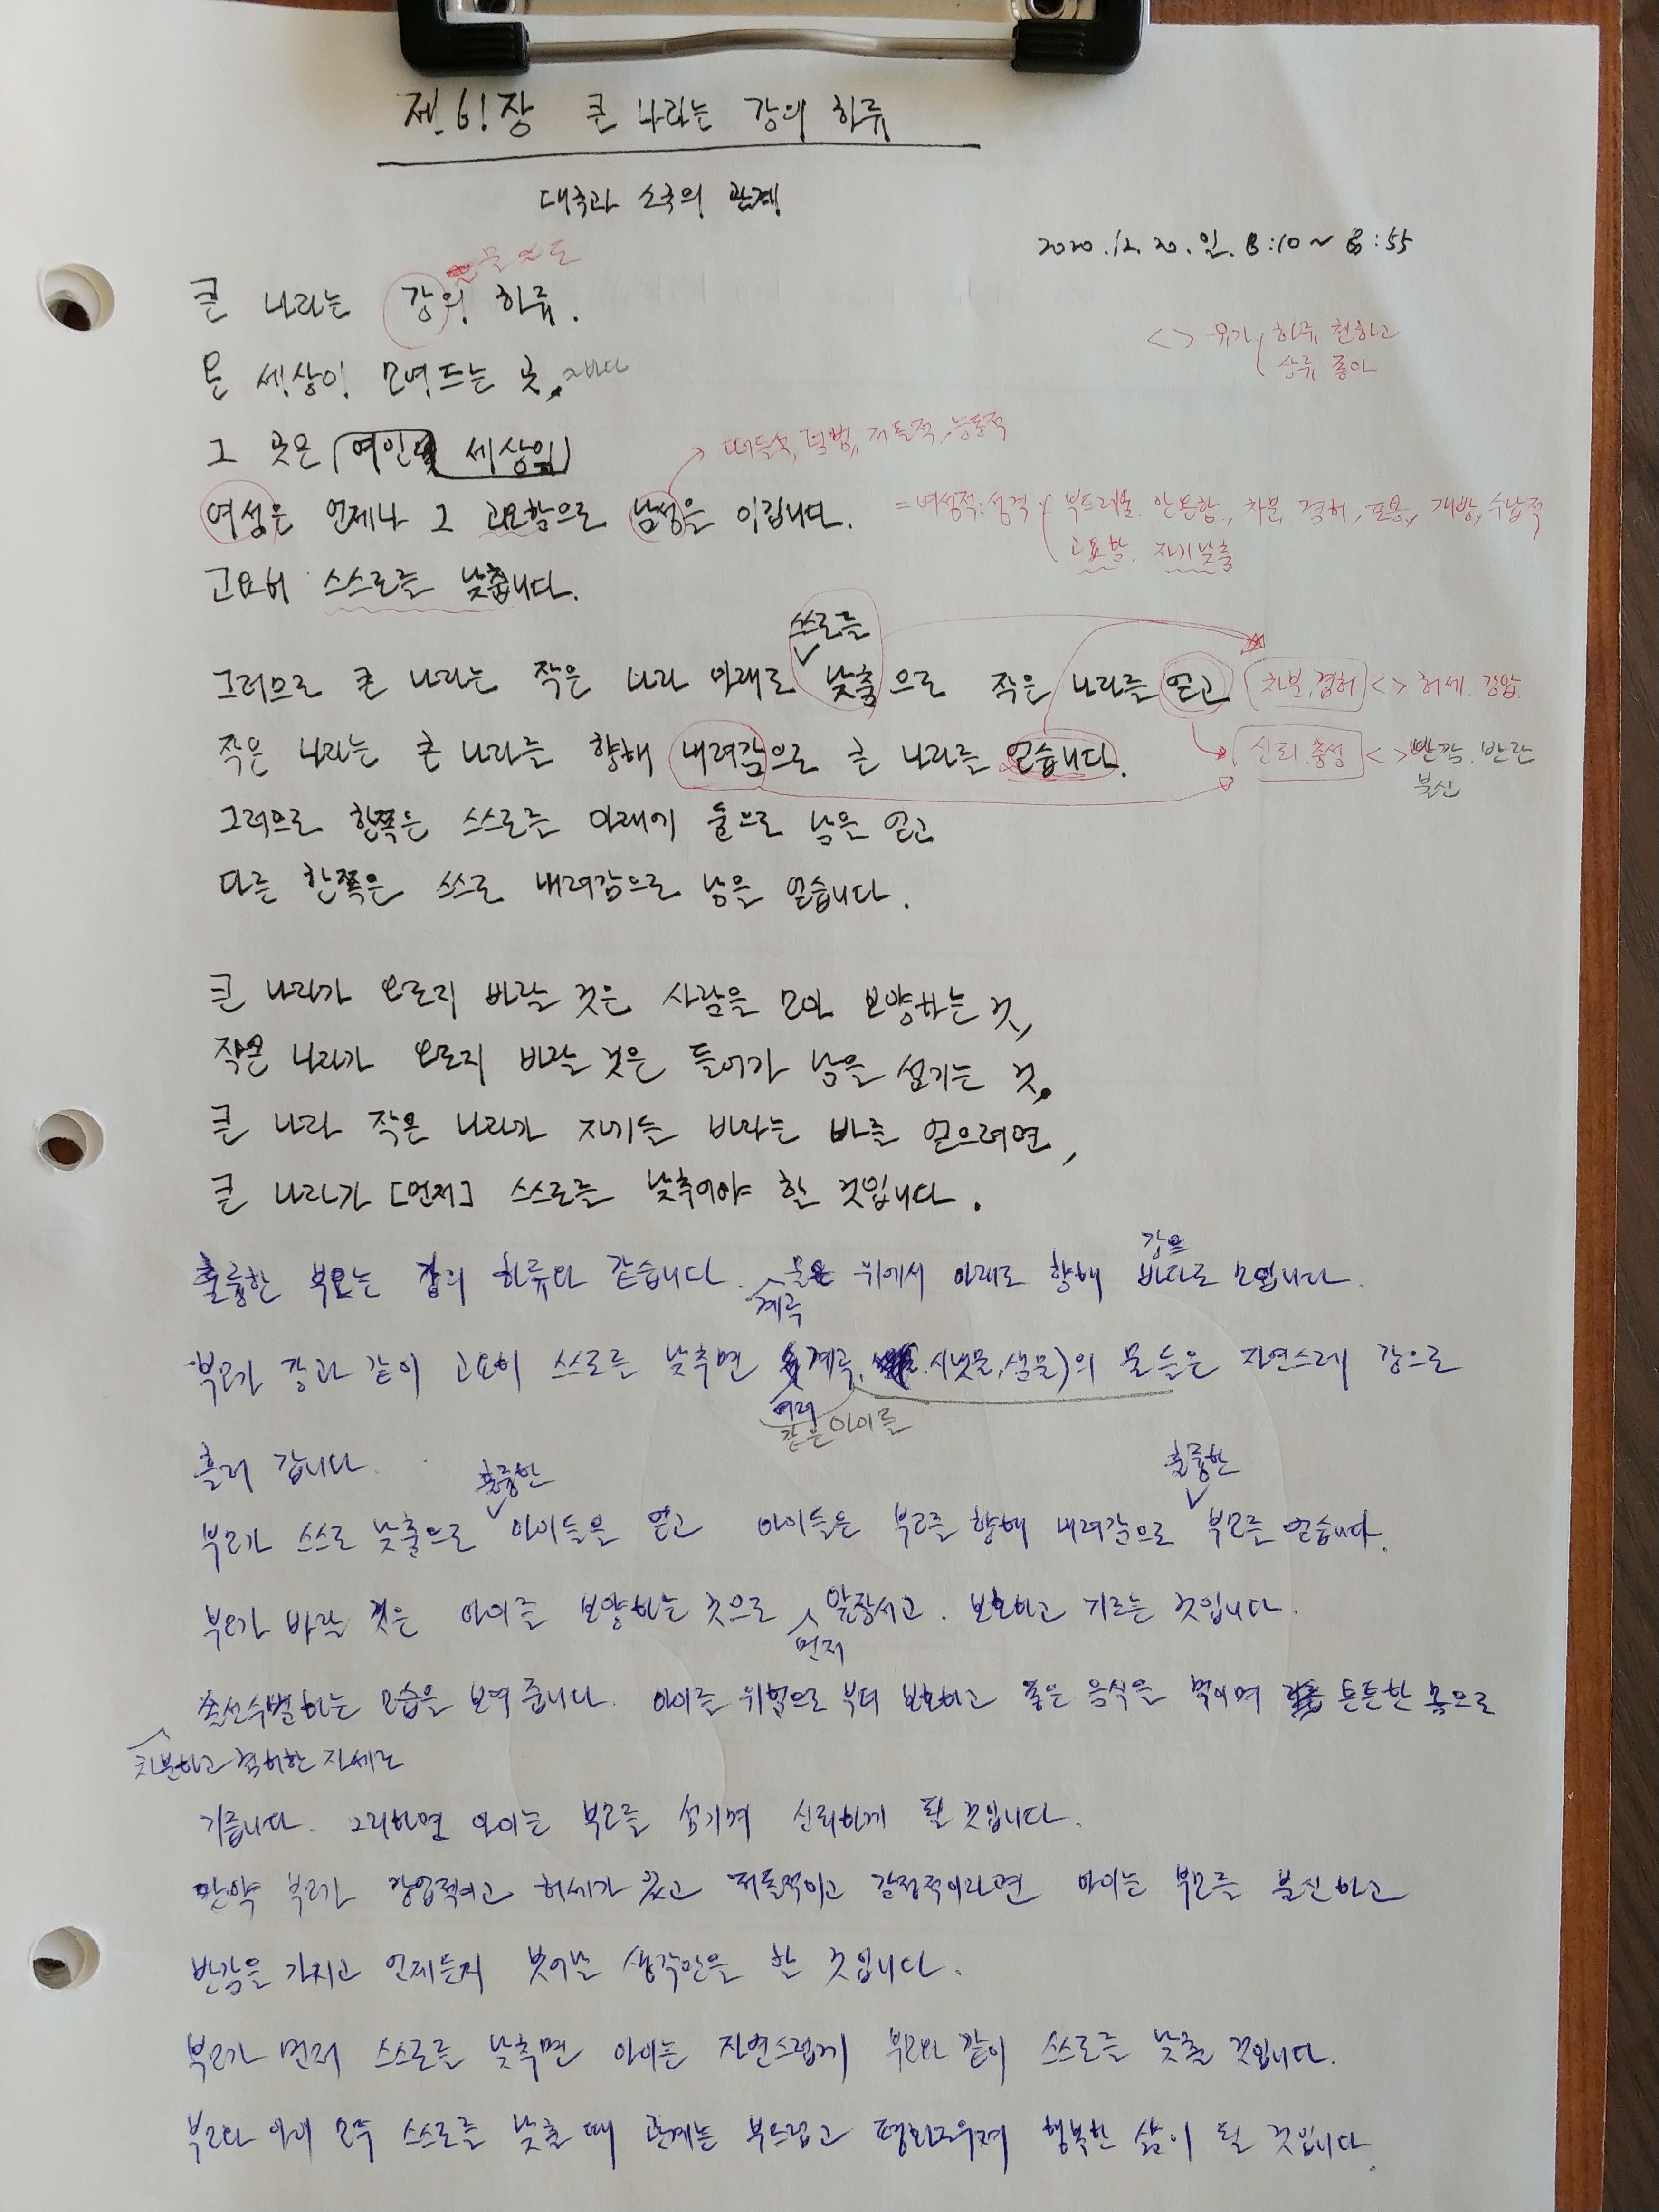 제 61장 큰 나라는 강의 하류
대국과 소국의 관계
2020.12.20.일. 8:10~8:55
큰 나라는 강의 하류.
<> 유가 하류 천하고
상류 좋아
온 세상이 모여드는 곳,
그 곳은 (여인 세상임)
떠들썩, 덤범, 저돌적, 능동적
여성은 언제나 그 고요함으로 남성을 이깁니다.
=여성적:성격 부드러움. 안온함, 차분, 겸허, 포용, 개방, 수납적
고요함. 자기낮춤
고요히 스스로를 낮춥니다.
스스로를
그러므로 큰 나라는 작은 나라 아래로 낮춤으로 작은 나라를 얻고 차분,겸허 <> 허세. 강압.
작은 나라는 큰 나라를 향해 내려감으로 큰 나라를 얻습니다. 신뢰.충성 <> 반감. 반란
불신
그러므로 한쪽은 스스로를 아래에 둠으로 남을 얻고
다른 한쪽은 스스로 내려감으로 남을 얻습니다.
큰 나라가 오로지 바랄 것은 사람을 모아 보양하는 것,
작은 나라가 오로지 바랄 것은 들어가 남을 섬기는 것.
큰 나라 작은 나라가 자기들 바라는 바를 얻으려면,
큰 나라가 [먼저] 스스로를 낮추어야 할 것입니다.
훌륭한 부모는 강의 하류와 같습니다. 계곡 물은 위에서 아래로 향해 강으로 바다로 모입니다.
부모가 강과 같이 고요히 스스로를 낮추면 계곡, 시냇물, 샘물)의 물들은 자연스레 강으로
여러
같은 아이들
흘러 갑니다.
훌륭한 훌륭한
부모가 스스로 낮춤으로 아이들을 얻고 아이들은 부모를 향해 내려감으로 부모를 얻습니다.
부모가 바랄 것은 아이를 보양하는 것으로 앞장서고. 보호하고 기르는 것입니다.
먼저
솔선수범하는 모습을 보여 줍니다. 아이를 위험으로 부터 보호하고 좋은 음식을 먹이며 튼튼한 몸으로
차분하고 겸허한 자세로
기릅니다. 그리하면 아이는 부모를 섬기며 신뢰하게 될 것입니다.
만약 부모가 강압적이고 허세가 있고 저돌적이고 감정적이라면 아이는 부모를 불신하고
반감을 가지고 언제든지 벗어날 생각만을 할 것입니다.
부모가 먼저 스스로를 낮추면 아이는 자연스럽게 부모와 같이 스스로를 낮출 것입니다.
부모와 아이 모두 스스로를 낮출 때 관계는 부드럽고 평화로우며 행복한 삶이 될 것입니다.